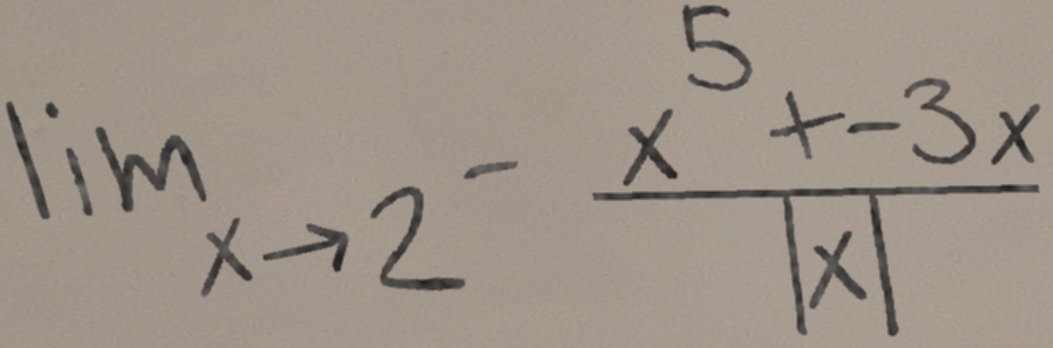 lim x→2⁻ (x⁵ + -3x)/|x|